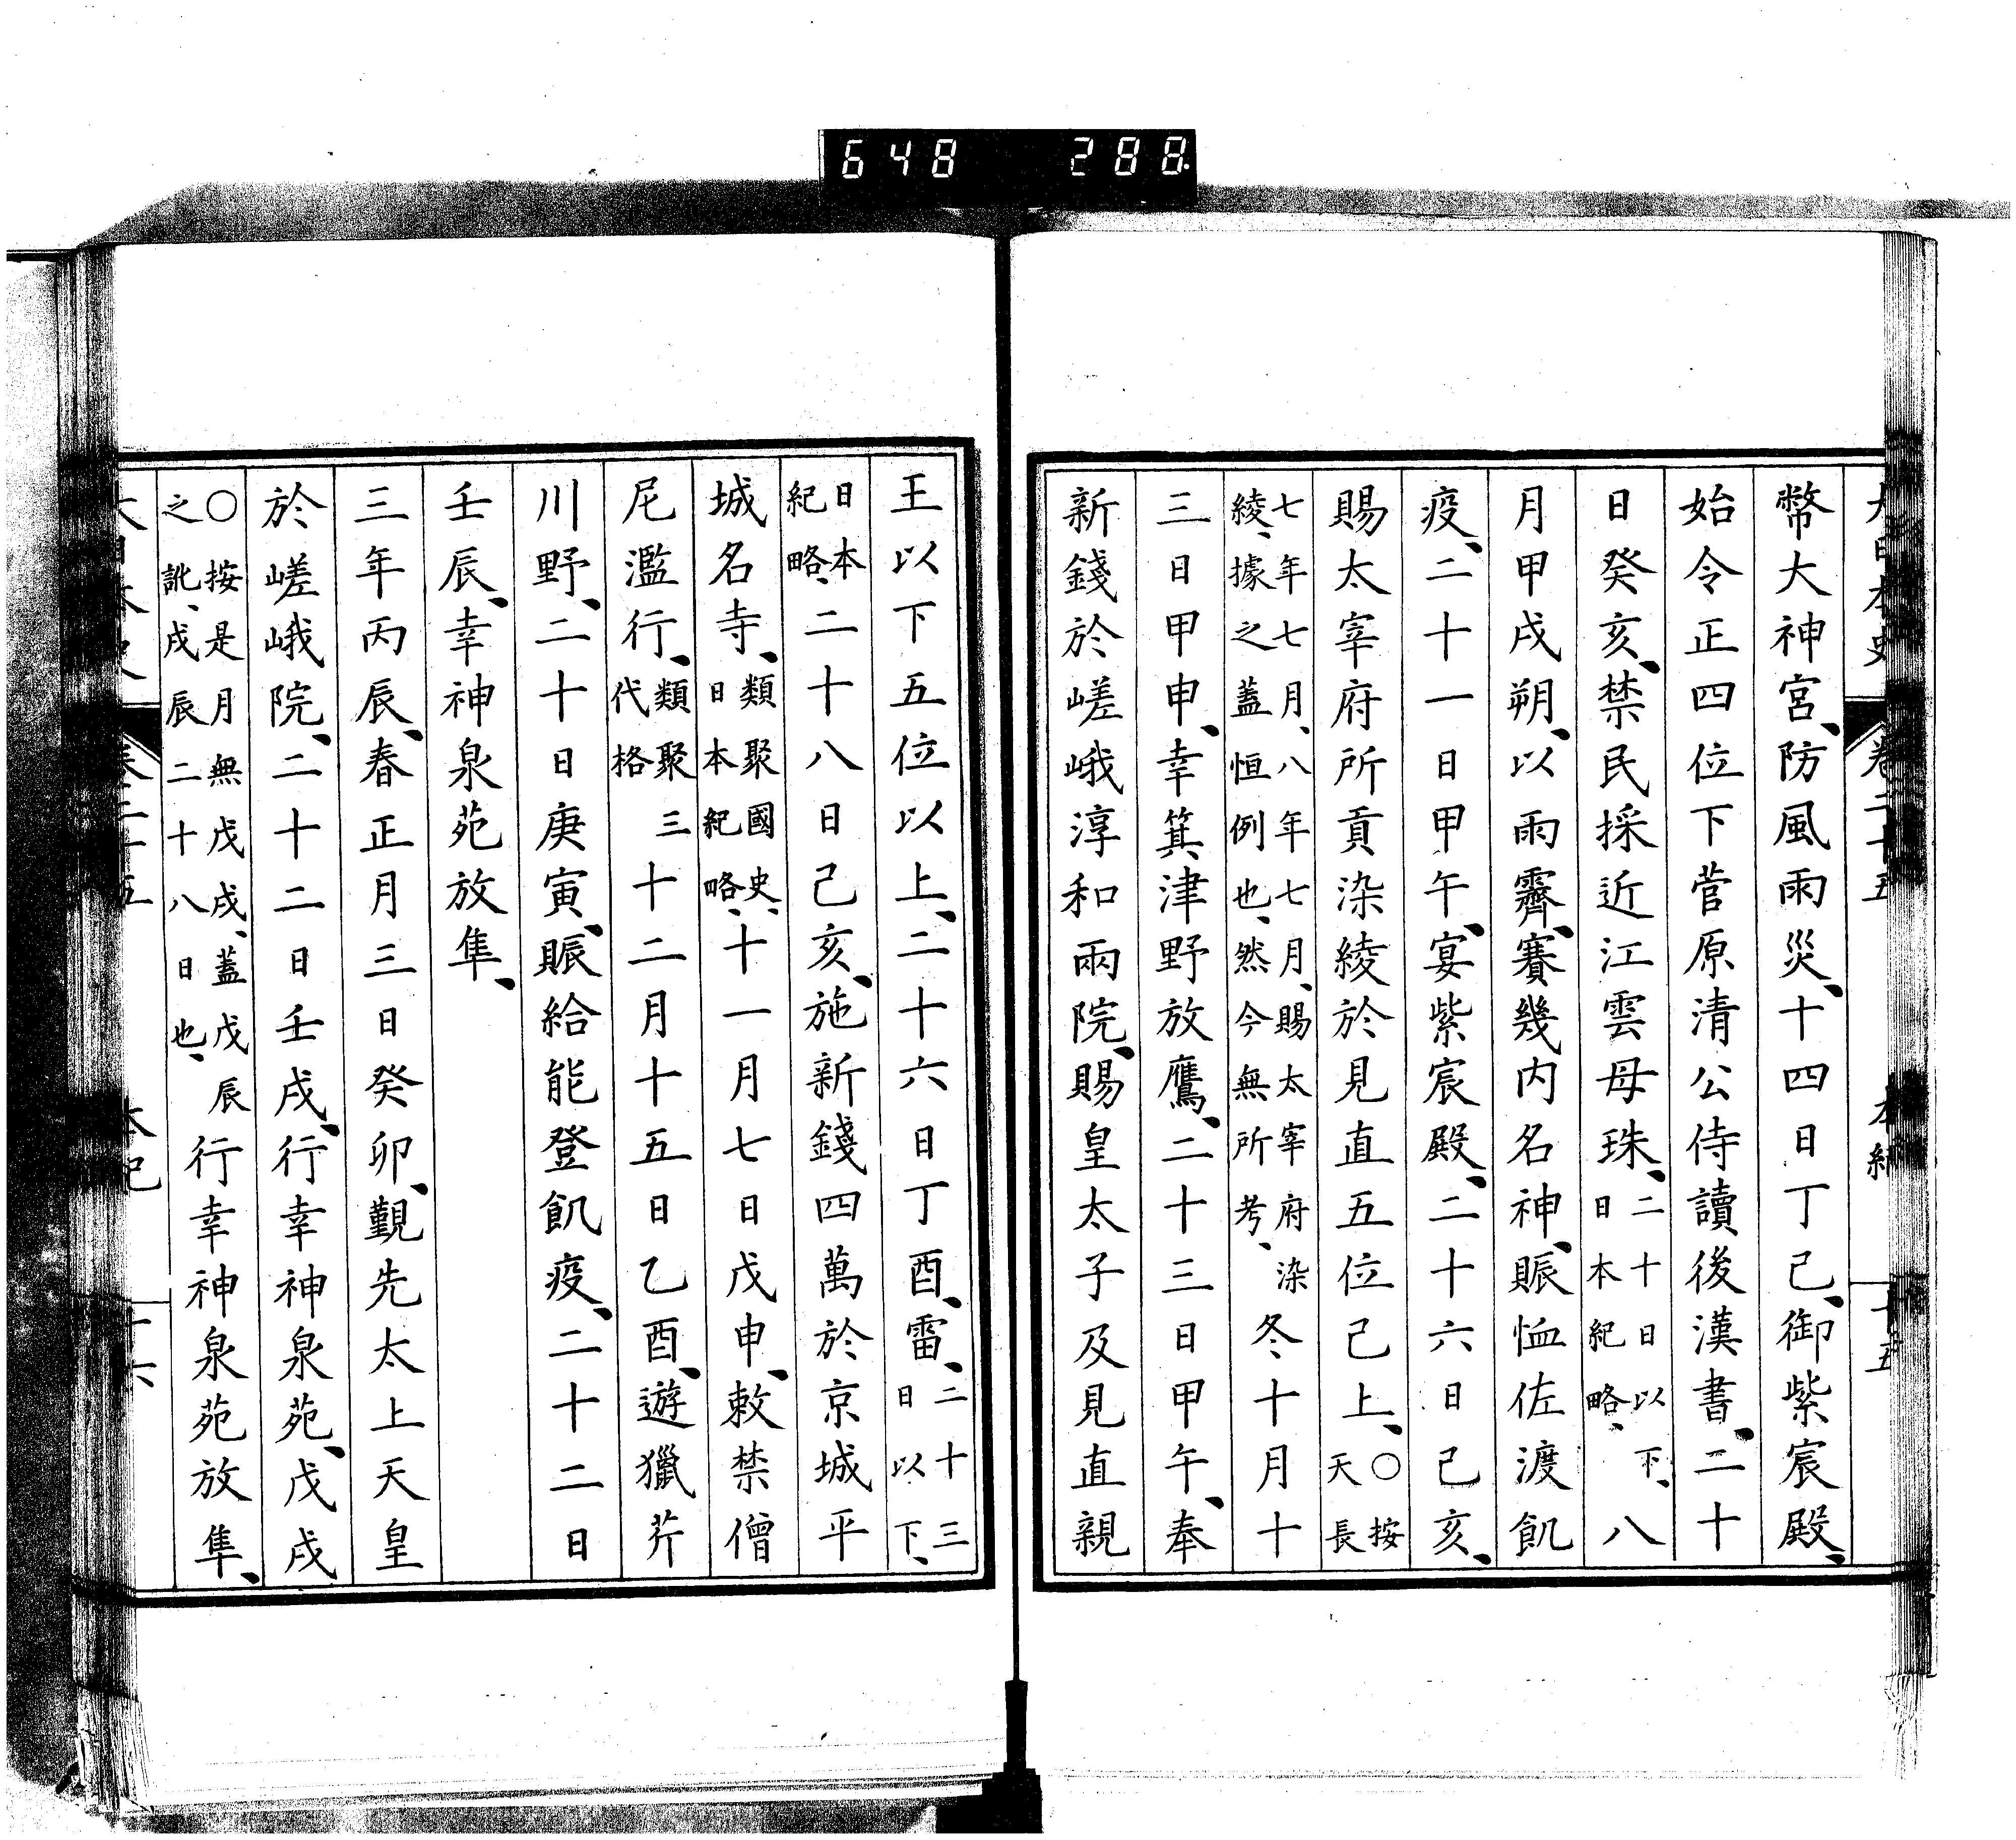 648 288
幣大神宮、防風雨災、十四日丁巳、御紫宸殿、
始令正四位下菅原清公侍讀後漢書、二十
日癸亥、禁民採近江雲母珠、二十日以下、日本紀略、八
月甲戌朔、以雨霽、賽幾内名神、賑恤佐渡飢
疫、二十一日甲午、宴紫宸殿、二十六日己亥、
賜太宰府所貢染綾於見直五位已上、〇按天長
七年七月、八年七月、賜太宰府染綾、據之蓋恒例也、然今無所考、冬十月十
三日甲申、幸箕津野放鷹、二十三日甲午、奉
新錢於嵯峨淳和兩院、賜皇太子及見直親
王以下五位以上、二十六日丁酉、雷、二十三日以下、
日本紀略、二十八日己亥、施新錢四萬於京城平
城名寺、類聚國史、日本紀略、十一月七日戊申、敕禁僧
尼濫行、類聚三代格十二月十五日乙酉、遊獵芹
川野、二十日庚寅、賑給能登飢疫、二十二日
壬辰、幸神泉苑放隼、
三年丙辰、春正月三日癸卯、覲先太上天皇
於嵯峨院、二十二日壬戌、行幸神泉苑、戊戌
〇按是月無戊戌、蓋戊辰之訛、戊辰二十八日也、行幸神泉苑放隼、